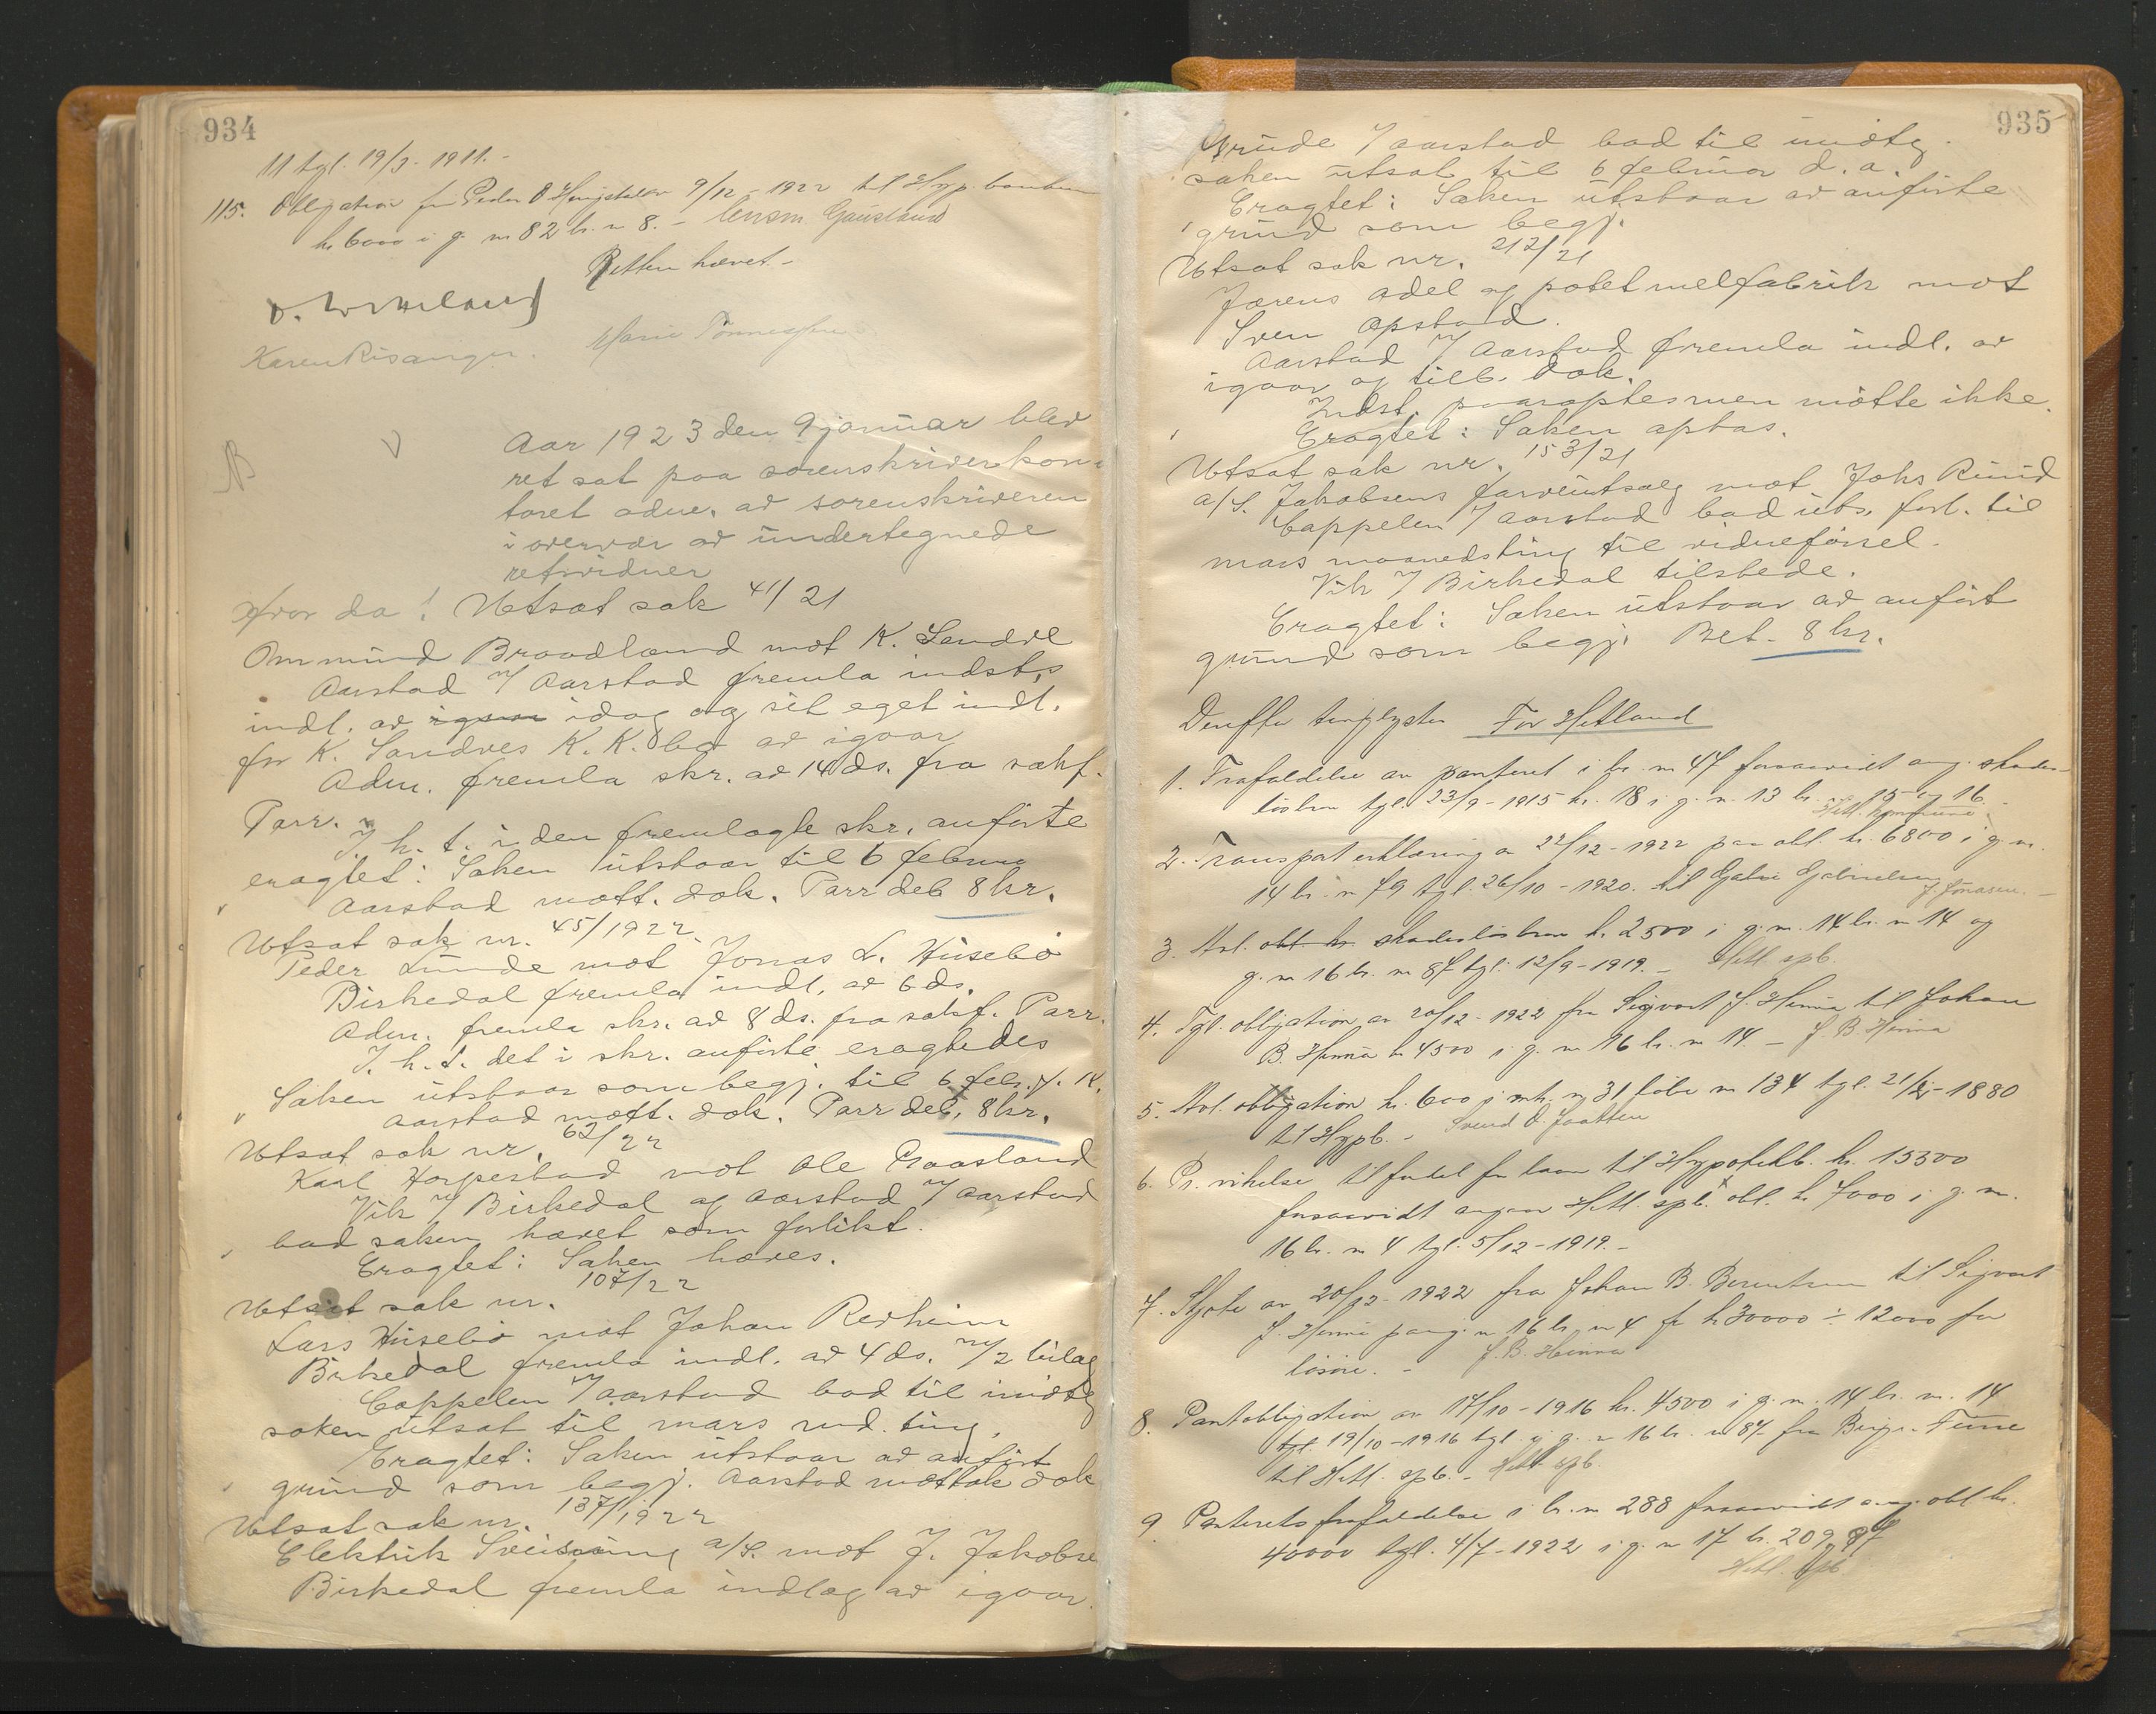 934
11 tgl. 19/3. 1911. -
115. Obligation fra Peder O Hongstad 9/12 - 1922 til Hyp. banken
kr 6000 i g. nr 82 br. nr 8. - lensm Gausland
Retten hævet -
Karen Risanger. Marie Tönnessen
Aar 1923 den 9 januar blev
ret sat paa sorenskriverkon-
toret adm. av sorenskriveren
i overvær av undertegnede
retsvidner
Hvor da! Utsat sak 41/21
Ommund Braadland mot K. Sandve
Aarstad f/ Aarstad fremla indst.s
indl. av igaar idag og sit eget indl.
for K. Sandves K. K. bo av igaar
Adm. fremla skr. av 14 ds. fra sakf.
Parr.
I h. t. i den fremlagte skr. anførte
eragtet: Saken utstaar til 6 februar
Aarstad mott. dok. Parr deb 8 kr.
Utsat sak nr. 45/1922
Peder Lunde mot Jonas L. Husebö
Birkedal fremla indl. av 6 ds.
Adm. fremla skr. av 8 ds. fra sakf. Parr.
I. h. t. det i skr. anförte eragtedes
Saken utstaar som begj. til 6 febr. f. k.
Aarstad mott. dok. Parr deb. 8 kr.
Utsat sak nr. 62/22
Karl Horpestad mot Ole Braastand
Vik f/ Birkedal og Aarstad f/ Aarstad
bad saken hævet som forlikt.
Eragtet: Saken hæves.
Utsat sak nr. 107/22
Lars Husebö mot Johan Redheim
Birkedal fremla indl. av 4 ds. m/2 bilag
Cappelen f/ Aarstad bad til imötg
saken utsat til mars md. ting.
Eragtet: Saken utstaar av anfört
grund som begj. Aarstad mottok dok
Utsat sak nr. 137/1922
Elektrik Sveisning a/S. mot J. Jakobse
Birkedal fremla indlæg av igaar.
935
Grude f/ Aarstad bad til imötg.
saken utsat til 6 februar d. a.
Eragtet: Saken utstaar av anförte
grund som begj.
Utsat sak nr. 212/21
Jærens adel og potetmelfabrik mot
Sven Opstad.
Aarstad f/ Aarstad fremla indl. av
igaar og tilb. dok.
Indst. paaroptes men mötte ikke.
Eragtet: Saken optas.
Utsat sak nr. 153/21
a/S. Jakobsens farveutsalg mot Johs Ruud
Cappelen f/ Aarstad bad uts. forl. til
mars maanedsting til vidneförsel.
Vik f/ Birkedal tilstede.
Eragtet: Saken utstaar av anfört
grund som begj. Bet. 8 kr.
Derefter tinglystes For Hetland
1. Frafaldelse av panteret i br. nr 47 forsaavidt ang. skades-
lösbrev tgl. 23/9 - 1915 kr. 18 i g. nr. 13 br. nr 15 og 16.
Hetl. kommune
2. Transporterklæring av 22/12 - 1922 paa obl. kr. 6800 i g. nr.
14 br. nr 79 tgl. 26/10 - 1920. til Gabri Gabrielsen
J. Jonasen. -
3. Avl. obl. kr. skadeslösbrev kr. 2500 i g. nr. 14 br. nr 14 og
g. nr 16 br. nr 87 tgl. 12/9 - 1919. - Hetl. spb.
4. Tgl. obligation av 20/12 - 1922 fra Sigvart J. Hinna til Johan
B. Hinna kr 4500 i g. nr 16 br. nr 14 - J. B. Hinna
5. Avl. obligation kr. 600 i mtr. nr 31 löbe nr 134 tgl. 21/2 - 1880
til Hypb. - Svend O. Jaatten
6. Pr. vikelse til fordel for laan til Hypotekb. kr. 15300
forsaavidt angaar Hetl. spb. obl. kr 7000 i g. nr.
16 br. nr 4 tgl. 5/12 - 1919. -
7. Skjöte av 20/12 - 1922 fra Johan B. Berentsen til Sigvart
J. Hinna paa g. nr 16 br. nr 4 for kr 30000 ÷ 12000 for
lösöre. - J. B. Hinna
8. Pantobligation av 17/10 - 1916 kr. 4500 i g. nr. 14 br. nr. 14
tgl. 19/10 - 1916 tgl. i g. nr 16 br. nr 87 fra Birger Tune
til Hetl. spb. - Hetl spb.
9 Panterets frafaldelse i br. nr 288 forsaavidt ang. obl kr.
40000 tgl. 4/7 - 1922 i g. nr 17 br. 209, 87
Hetl. spb.